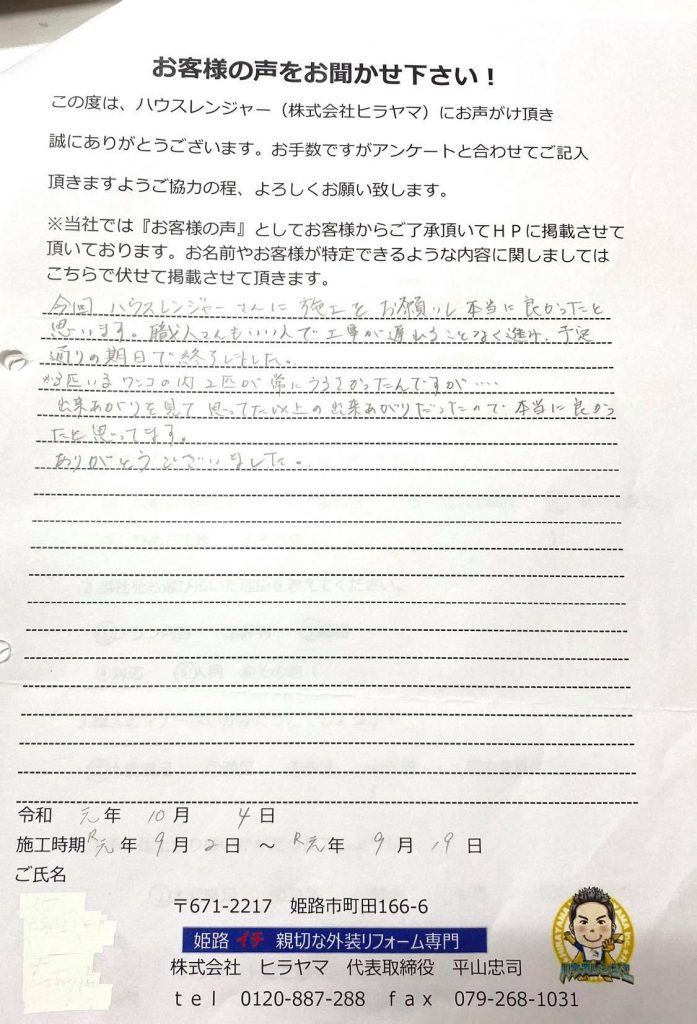 お客様の声をお聞かせ下さい！
この度は、ハウスレンジャー（株式会社ヒラヤマ）にお声がけ頂き
誠にありがとうございます。お手数ですがアンケートと合わせてご記入
頂きますようご協力の程、よろしくお願い致します。
※当社では『お客様の声』としてお客様からご了承頂いてＨＰに掲載させて
頂いております。お名前やお客様が特定できるような内容に関しましては
こちらで伏せて掲載させて頂きます。
今回 ハウスレンジャーさんに 施工を お願いし 本当に良かったと
思います。職人さんもいい人で 工事が遅れることなく進み、予定
通りの期日で終了しました。
匹いる ワンコの内 2匹が 常にうるさかったんですが‥‥
出来あがりを見て 思ってた以上の出来あがりだったので 本当に良かっ
たと思ってます。
ありがとうございました。
令和 元年 10月 4日
施工時期 R元年 9月 2日 ～ R元年 9月 19日
ご氏名
〒671-2217 姫路市町田166-6
姫路 イチ 親切な外装リフォーム専門
株式会社 ヒラヤマ 代表取締役 平山忠司
ｔｅｌ 0120-887-288 ｆａｘ 079-268-1031